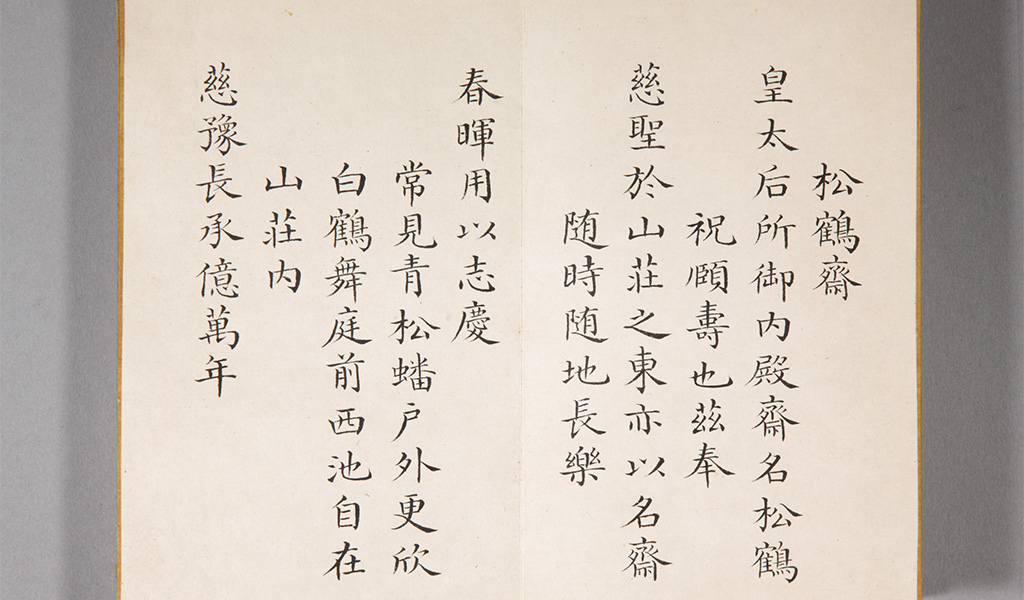 松鶴齋
皇太后所御内殿齋名松鶴
祝頤壽也茲奉
慈聖於山莊之東亦以名齋
随時随地長樂
春暉用以志慶
常見青松蟠户外更欣
白鶴舞庭前西池自在
山莊内
慈豫長承億萬年